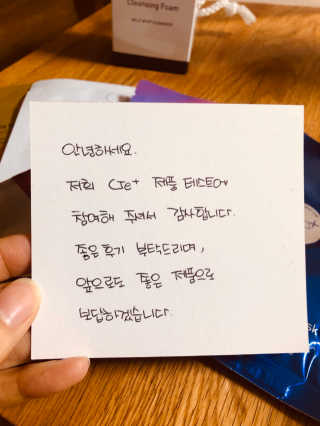 Cleansing Foam
안녕하세요.
저희 Cre+ 제품 테스트에
참여해 주셔서 감사합니다.
좋은 후기 부탁드리며,
앞으로도 좋은 제품으로
보답하겠습니다.